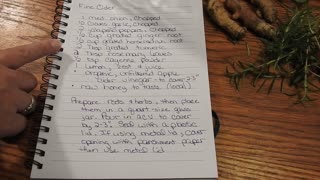 Fire Cider
1 med. onion, chopped
cloves garlic, chopped
jalapeño peppers, chopped
cup grated ginger root
cup grated horseradish root
Tbsp grated turmeric
Tbsp rosemary leaves
tsp cayenne powder
Lemon, zest & juice
organic, unfiltered apple
cider vinegar - to cover 2-3"
raw honey to taste (local)
Prepare roots & herbs, then place
them in a quart-size glass
jar. Pour in ACV to cover
by 2-3". Seal with a plastic
lid. If using metal lid, cover
opening with parchment paper
then use metal lid.